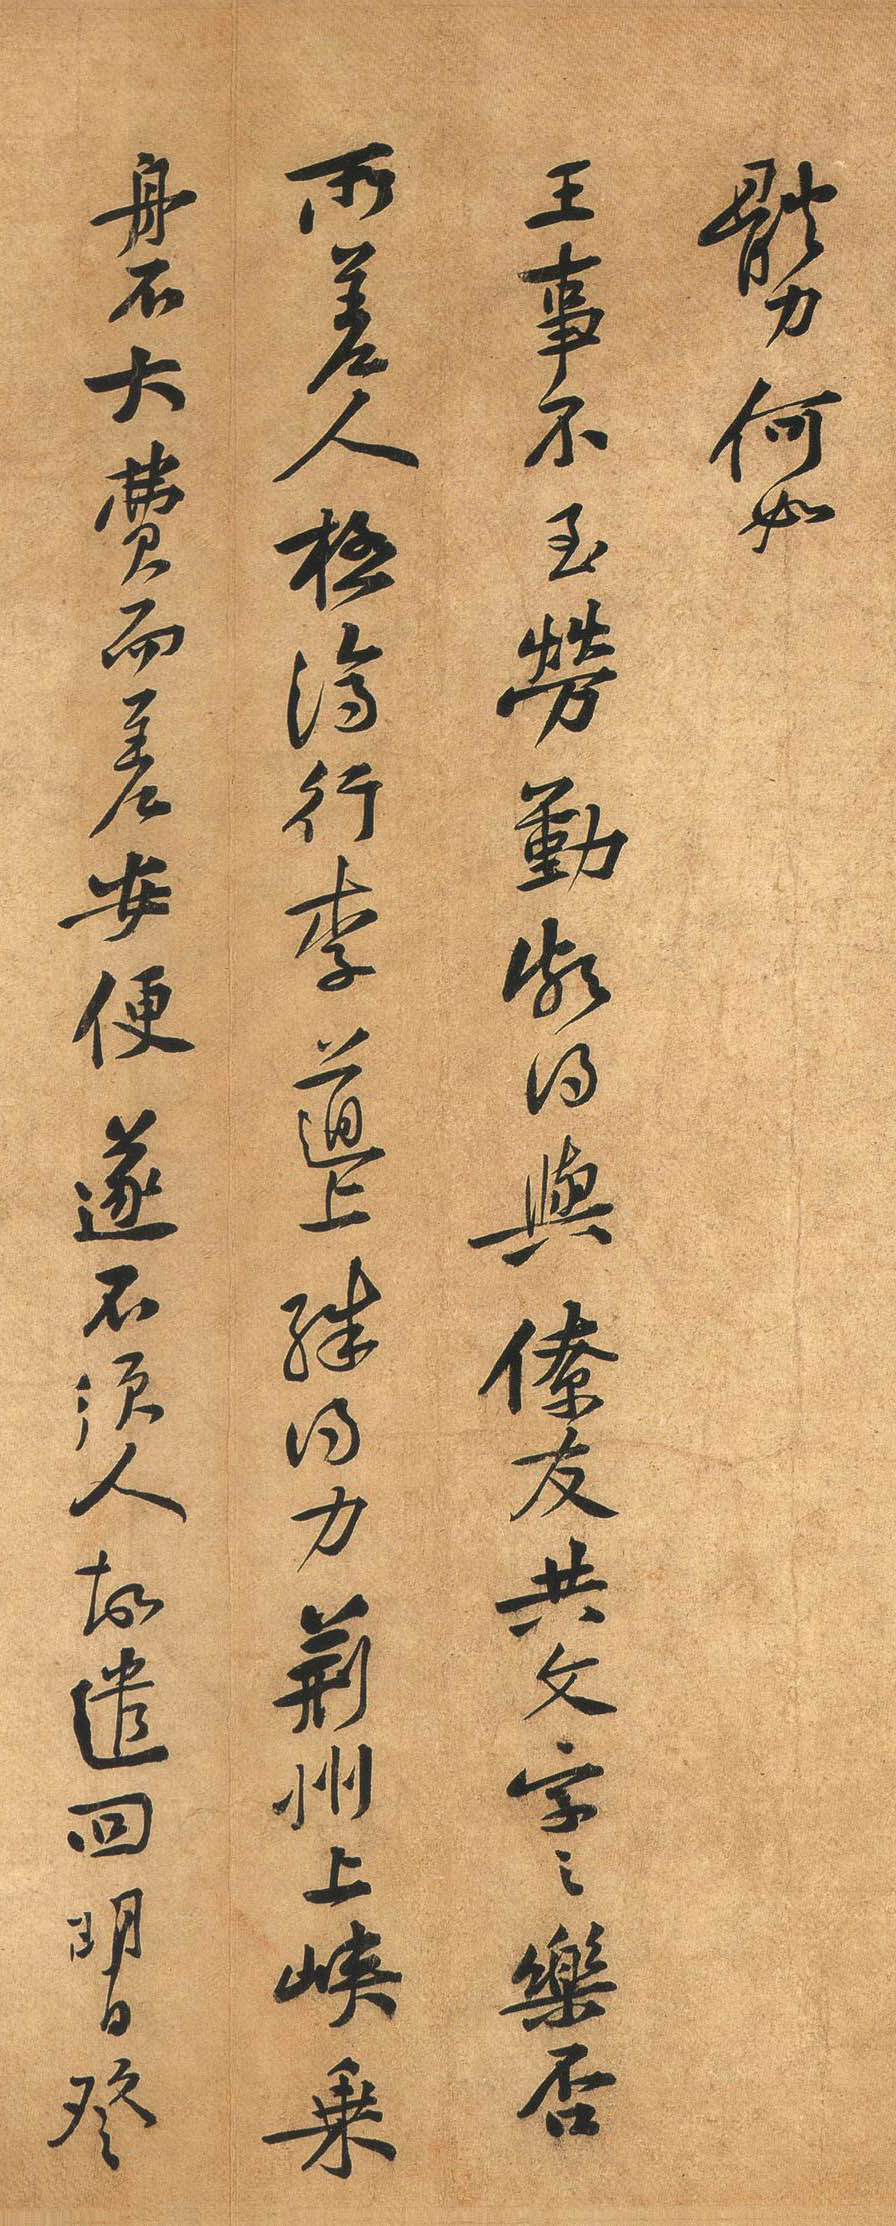 體力何如
王事不至勞勤頗得與僚友共文字之樂否
所差人極濟行李道上殊得力荊州上峽乘
舟不大費而差安便遂不須人故遣回明日登